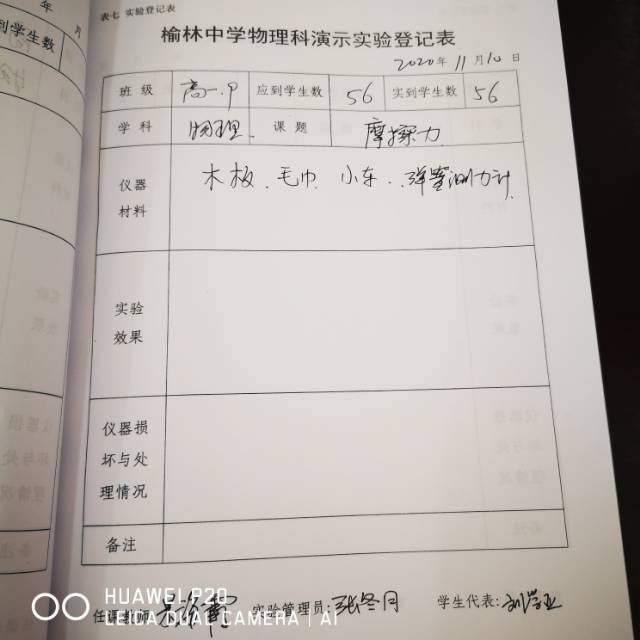 年 月
到学生数
表七 实验登记表
榆林中学物理科演示实验登记表
2020年 11月10日
班级 高一.9 应到学生数 56 实到学生数 56
学科 物理. 课题 摩擦力
仪器材料 木板、毛巾、小车、弹簧测力计
实验效果
仪器损坏与处理情况
备注
任课教师: 实验管理员: 张冬月 学生代表:
HUAWEI P20
LEICA DUAL CAMERA | AI